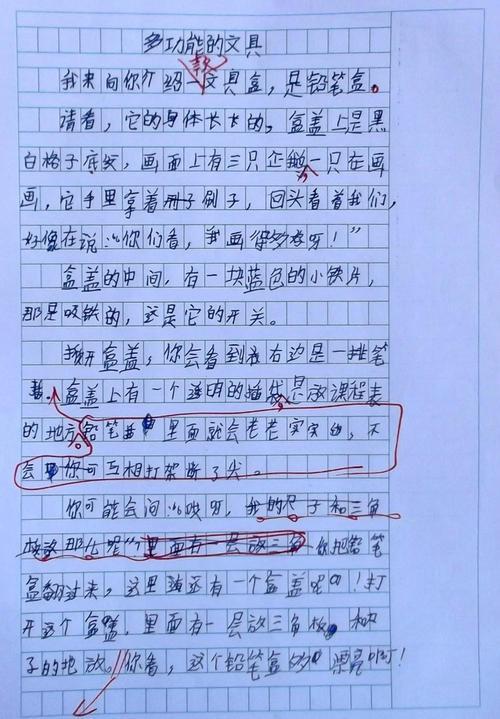 多功能的文具
我来向你介绍一款文具盒，是铅笔盒。
请看，它的身体长长的。盒盖上是黑
白格子底纹，画面上有三只企鹅，一只在画
画，它手里拿着刷子，回头看着我们，
好像在说：“你们看，我画得多好呀！”
盒盖的中间，有一块蓝色的小铁片，
那是吸铁的，这是它的开关。
开盒盖，你会看到右边是一排笔
盒盖上有一个透明的插袋，是放课程表
的地方。铅笔 里面就会老老实实的，不
会 你可互相打架断了尖。
你可能会问：“哎呀，我的尺子和三角
板放那儿呢”里面有一层放三角 你把铅笔
盒翻过来，这里还有一个盒盖呢！打
开这个盒盖，里面有一层放三角板，
子的地放。你看，这个铅笔盒多 漂亮啊！